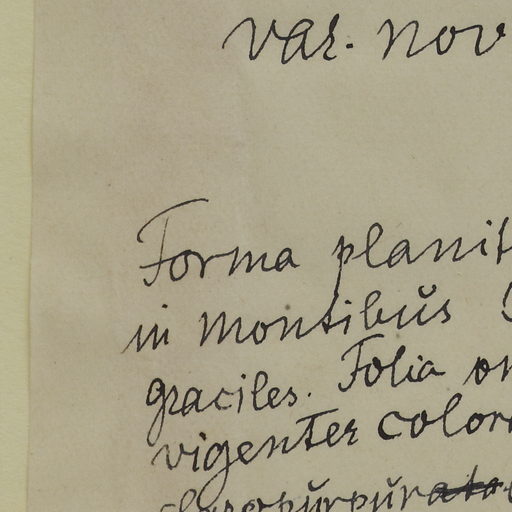 var. nov
Forma planit
in montibus
graciles. Folia
vigenter color